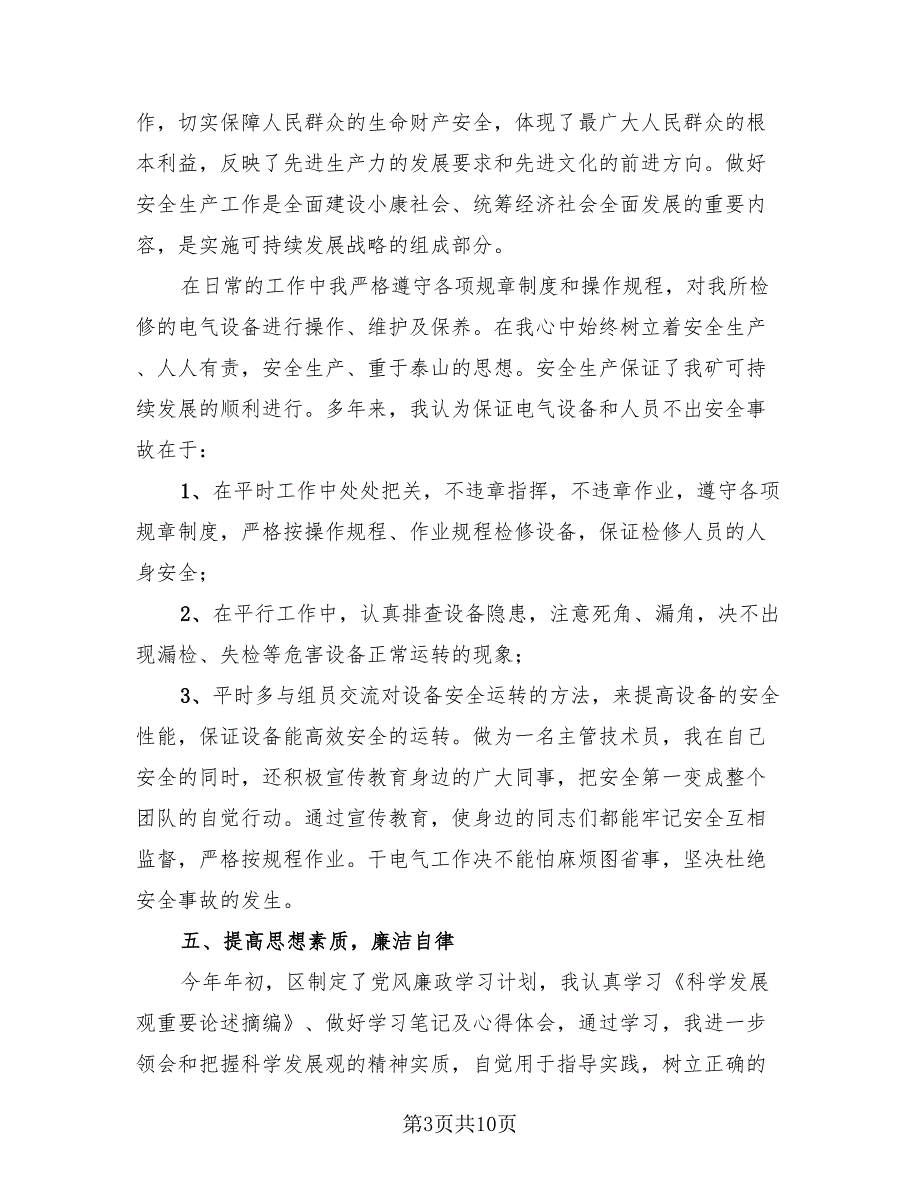 作，切实保障人民群众的生命财产安全，体现了最广大人民群众的根
本利益，反映了先进生产力的发展要求和先进文化的前进方向。做好
安全生产工作是全面建设小康社会、统筹经济社会全面发展的重要内
容，是实施可持续发展战略的组成部分。
在日常的工作中我严格遵守各项规章制度和操作规程，对我所检
修的电气设备进行操作、维护及保养。在我心中始终树立着安全生产
、人人有责，安全生产、重于泰山的思想。安全生产保证了我矿可持
续发展的顺利进行。多年来，我认为保证电气设备和人员不出安全事
故在于：
1、在平时工作中处处把关，不违章指挥，不违章作业，遵守各项
规章制度，严格按操作规程、作业规程检修设备，保证检修人员的人
身安全；
2、在平行工作中，认真排查设备隐患，注意死角、漏角，决不出
现漏检、失检等危害设备正常运转的现象；
3、平时多与组员交流对设备安全运转的方法，来提高设备的安全
性能，保证设备能高效安全的运转。做为一名主管技术员，我在自己
安全的同时，还积极宣传教育身边的广大同事，把安全第一变成整个
团队的自觉行动。通过宣传教育，使身边的同志们都能牢记安全互相
监督，严格按规程作业。干电气工作决不能怕麻烦图省事，坚决杜绝
安全事故的发生。
五、提高思想素质，廉洁自律
今年年初，区制定了党风廉政学习计划，我认真学习《科学发展
观重要论述摘编》、做好学习笔记及心得体会，通过学习，我进一步
领会和把握科学发展观的精神实质，自觉用于指导实践，树立正确的
第3页共10页